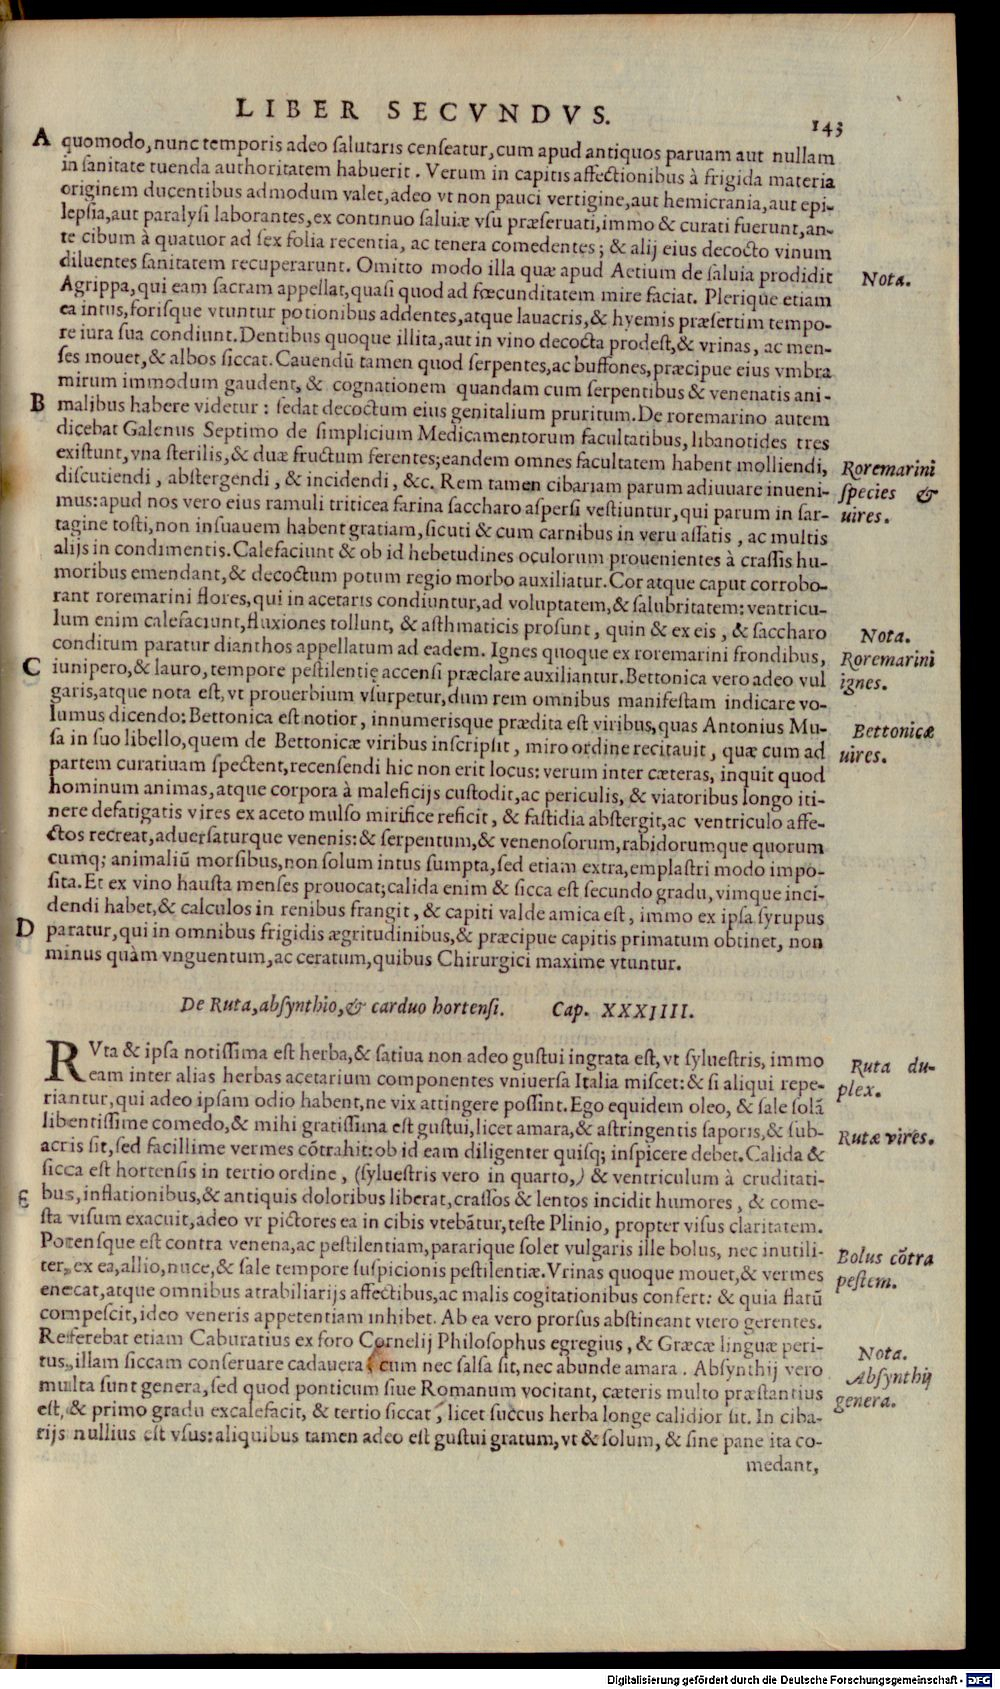 LIBER SECVNDVS.
143
A quomodo, nunc temporis adeo ſalutaris cenſeatur, cum apud antiquos paruam aut nullam
in ſanitate tuenda authoritatem habuerit. Verum in capitis affectionibus à frigida materia
originem ducentibus admodum valet, adeo vt non pauci vertigine, aut hemicrania, aut epi-
lepſia, aut paralyſi laborantes, ex continuo ſaluiæ vſu præſeruati, immo & curati fuerunt, an-
te cibum à quatuor ad ſex folia recentia, ac tenera comedentes; & alij eius decocto vinum
diluentes ſanitatem recuperarunt. Omitto modo illa quæ apud Aetium de ſaluia prodidit
Nota.
Agrippa, qui eam ſacram appellat, quaſi quod ad fœcunditatem mire faciat. Plerique etiam
ea intus, foriſque vtuntur potionibus addentes, atque lauacris, & hyemis præſertim tempo-
re iura ſua condiunt. Dentibus quoque illita, aut in vino decocta prodeſt, & vrinas, ac men-
ſes mouet, & albos ſiccat. Cauendũ tamen quod ſerpentes, ac buffones, præcipue eius vmbra
mirum immodum gaudent, & cognationem quandam cum ſerpentibus & venenatis ani-
B malibus habere videtur: ſedat decoctum eius genitalium pruritum. De roremarino autem
dicebat Galenus Septimo de ſimplicium Medicamentorum facultatibus, libanotides tres
exiſtunt, vna ſterilis, & duæ fructum ferentes; eandem omnes facultatem habent molliendi,
Roremarini
diſcutiendi, abſtergendi, & incidendi, &c. Rem tamen cibariam parum adiuuare inueni-
ſpecies &
mus: apud nos vero eius ramuli triticea farina ſaccharo aſperſi veſtiuntur, qui parum in ſar-
uires.
tagine toſti, non inſuauem habent gratiam, ſicuti & cum carnibus in veru aſſatis, ac multis
alijs in condimentis. Calefaciunt & ob id hebetudines oculorum prouenientes à craſſis hu-
moribus emendant, & decoctum potum regio morbo auxiliatur. Cor atque caput corrobo-
rant roremarini flores, qui in acetaris condiuntur, ad voluptatem, & ſalubritatem: ventricu-
lum enim calefaciunt, fluxiones tollunt, & aſthmaticis proſunt, quin & ex eis, & ſaccharo
Nota.
conditum paratur dianthos appellatum ad eadem. Ignes quoque ex roremarini frondibus,
Roremarini
C iunipero, & lauro, tempore peſtilentię accenſi præclare auxiliantur. Bettonica vero adeo vul
ignes.
garis, atque nota eſt, vt prouerbium vſurpetur, dum rem omnibus manifeſtam indicare vo-
lumus dicendo: Bettonica eſt notior, innumerisque prædita eſt viribus, quas Antonius Mu-
Bettonicæ
ſa in ſuo libello, quem de Bettonicæ viribus inſcripſit, miro ordine recitauit, quæ cum ad
uires.
partem curatiuam ſpectent, recenſendi hic non erit locus: verum inter cæteras, inquit quod
hominum animas, atque corpora à maleficijs cuſtodit, ac periculis, & viatoribus longo iti-
nere defatigatis vires ex aceto mulſo mirifice reficit, & faſtidia abſtergit, ac ventriculo affe-
ctos recreat, aduerſaturque venenis: & ſerpentum, & venenoſorum, rabidorumque quorum
cumq; animaliũ morſibus, non ſolum intus ſumpta, ſed etiam extra, emplaſtri modo impo-
ſita. Et ex vino hauſta menſes prouocat; calida enim & ſicca eſt ſecundo gradu, vimque inci-
dendi habet, & calculos in renibus frangit, & capiti valde amica eſt, immo ex ipſa ſyrupus
D paratur, qui in omnibus frigidis ægritudinibus, & præcipue capitis primatum obtinet, non
minus quàm vnguentum, ac ceratum, quibus Chirurgici maxime vtuntur.
De Ruta, abſynthio, & carduo hortenſi. Cap. XXXIIII.
RVta & ipſa notiſſima eſt herba, & ſatiua non adeo guſtui ingrata eſt, vt ſylueſtris, immo
Ruta du-
eam inter alias herbas acetarium componentes vniuerſa Italia miſcet: & ſi aliqui repe-
plex.
riantur, qui adeo ipſam odio habent, ne vix attingere poſſint. Ego equidem oleo, & ſale ſolã
libentiſſime comedo, & mihi gratiſſima eſt guſtui, licet amara, & aſtringentis ſaporis, & ſub-
Rutæ vires.
acris ſit, ſed facillime vermes cõtrahit: ob id eam diligenter quiſq; inſpicere debet. Calida &
ſicca eſt hortenſis in tertio ordine, (ſylueſtris vero in quarto,) & ventriculum à cruditati-
E bus, inflationibus, & antiquis doloribus liberat, craſſos & lentos incidit humores, & come-
ſta viſum exacuit, adeo vt pictores ea in cibis vtebãtur, teſte Plinio, propter viſus claritatem.
Potensque eſt contra venena, ac peſtilentiam, pararique ſolet vulgaris ille bolus, nec inutili-
Bolus cõtra
ter, ex ea, allio, nuce, & ſale tempore ſuſpicionis peſtilentiæ. Vrinas quoque mouet, & vermes
peſtem.
enecat, atque omnibus atrabiliarijs affectibus, ac malis cogitationibus confert: & quia flatũ
compeſcit, ideo veneris appetentiam inhibet. Ab ea vero prorſus abſtineant vtero gerentes.
Refferebat etiam Caburatius ex foro Cornelij Philoſophus egregius, & Græcæ linguæ peri-
Nota.
tus, illam ſiccam conſeruare cadauera cum nec ſalſa ſit, nec abunde amara. Abſynthij vero
Abſynthij
multa ſunt genera, ſed quod ponticum ſiue Romanum vocitant, cæteris multo præſtantius
genera.
eſt, & primo gradu excalefacit, & tertio ſiccat, licet ſuccus herba longe calidior ſit. In ciba-
rijs nullius eſt vſus: aliquibus tamen adeo eſt guſtui gratum, vt & ſolum, & ſine pane ita co-
medant,
Digitalisierung gefördert durch die Deutsche Forschungsgemeinschaft - DFG